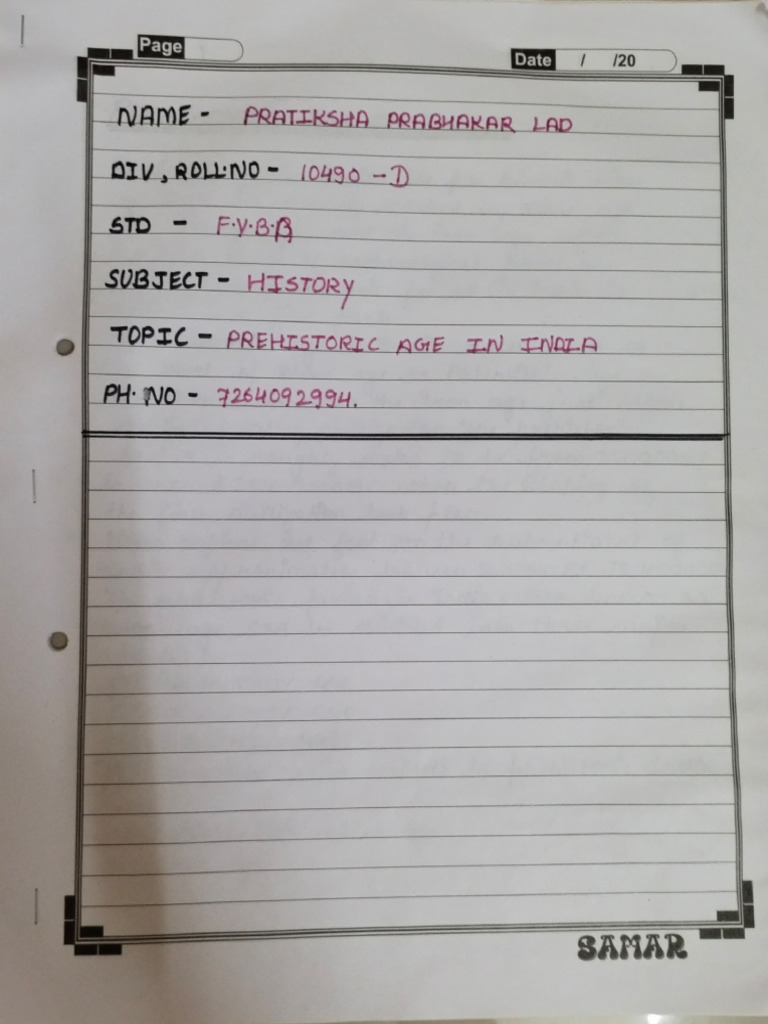 Page
Date / /20
NAME - PRATIKSHA PRABHAKAR LAD
DIV, ROLL.NO - 10490 - D
STD - F.Y.B.A
SUBJECT - HISTORY
TOPIC - PREHISTORIC AGE IN INDIA
PH. NO - 7264092994.
SAMAR